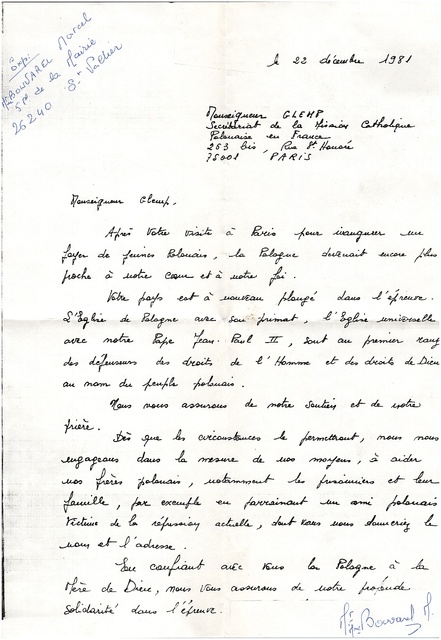 Exp:
Mr Mme BOUVAREL Marcel
Pl de la Mairie
St Vallier
26240
le 22 décembre 1981
Monseigneur GLEMP
Secrétariat de la Mission Catholique
Polonaise en France
263 bis, Rue St Honoré
75001 PARIS
Monseigneur Glemp,
Après votre visite à Paris pour inaugurer un
foyer de jeunes Polonais, la Pologne devenait encore plus
proche à notre cœur et à notre foi.
Votre pays est à nouveau plongé dans l'épreuve.
L'Eglise de Pologne avec son primat, l'Eglise universelle
avec notre Pape Jean-Paul II, sont au premier rang
des défenseurs des droits de l'Homme et des droits de Dieu
au nom du peuple polonais.
Nous vous assurons de notre soutien et de notre
prière.
Dès que les circonstances le permettront, nous nous
engageons dans la mesure de nos moyens, à aider
nos frères polonais, notamment les prisonniers et leur
famille, par exemple en parrainant un ami polonais
victime de la répression actuelle, dont vous nous donneriez le
nom et l'adresse.
En confiant avec vous la Pologne à la
Mère de Dieu, nous vous assurons de notre profonde
solidarité dans l'épreuve.
Mr Mme Bouvarel M.